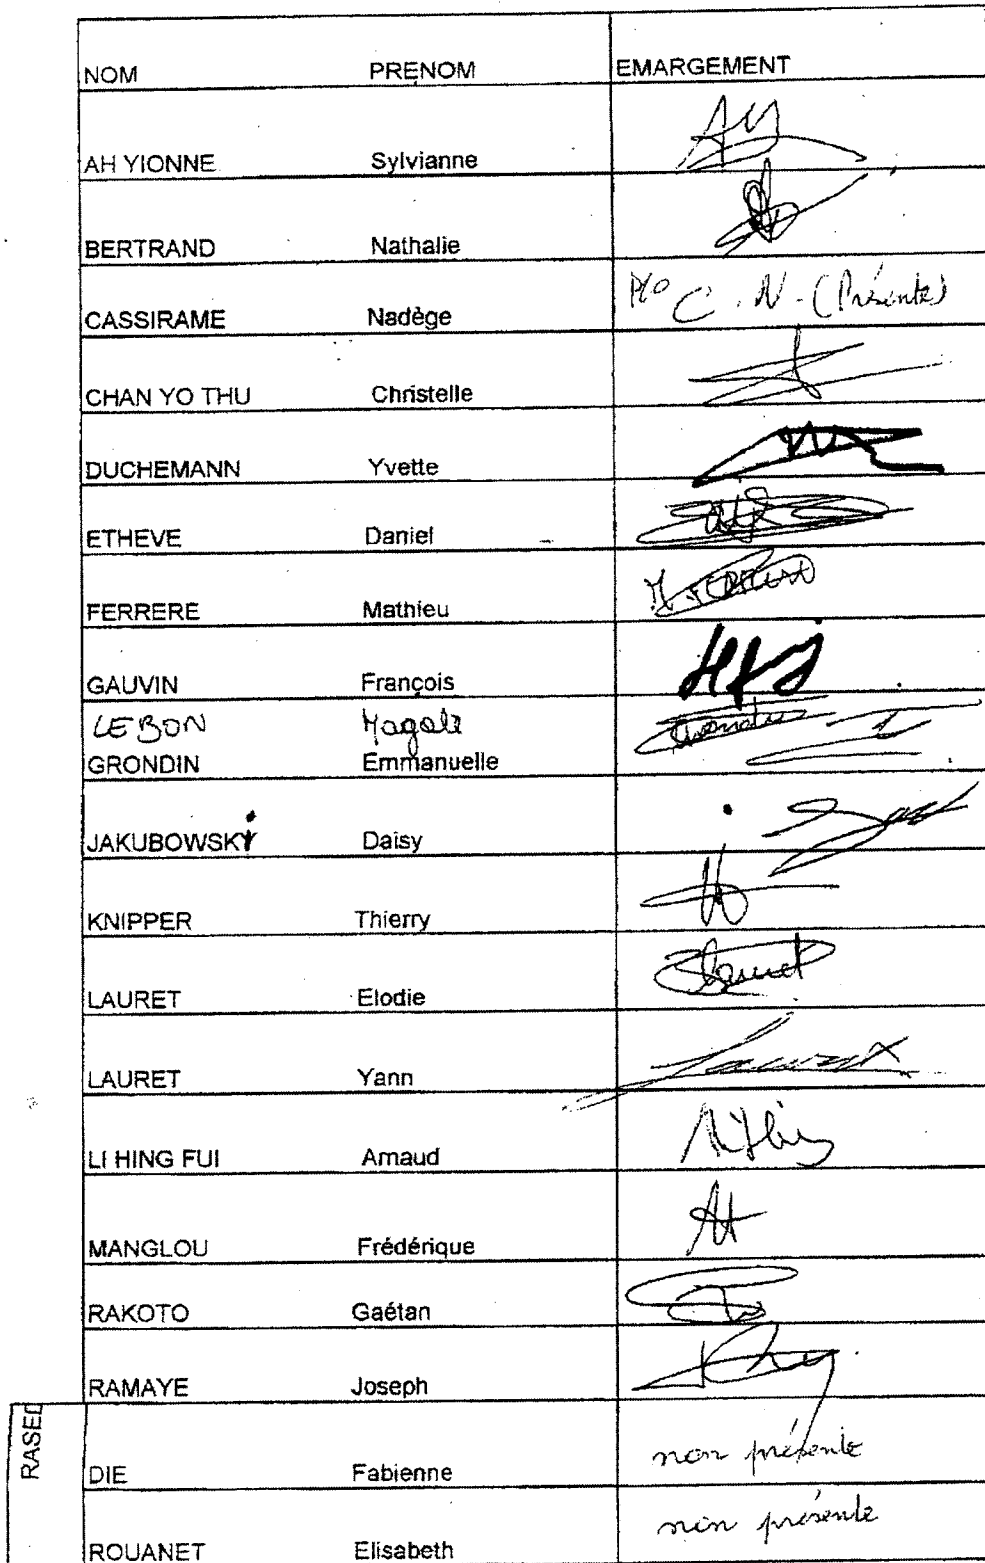 NOM PRENOM EMARGEMENT
AH YIONNE Sylvianne
BERTRAND Nathalie
CASSIRAME Nadège P/o C.N-(Présente)
CHAN YO THU Christelle
DUCHEMANN Yvette
ETHEVE Daniel
FERRERE Mathieu
GAUVIN François
LEBON Magalie
GRONDIN Emmanuelle
JAKUBOWSKI Daisy
KNIPPER Thierry
LAURET Elodie
LAURET Yann
LI HING FUI Arnaud
MANGLOU Frédérique
RAKOTO Gaétan
RAMAYE Joseph
RASED
DIE Fabienne non présente
ROUANET Elisabeth non présente